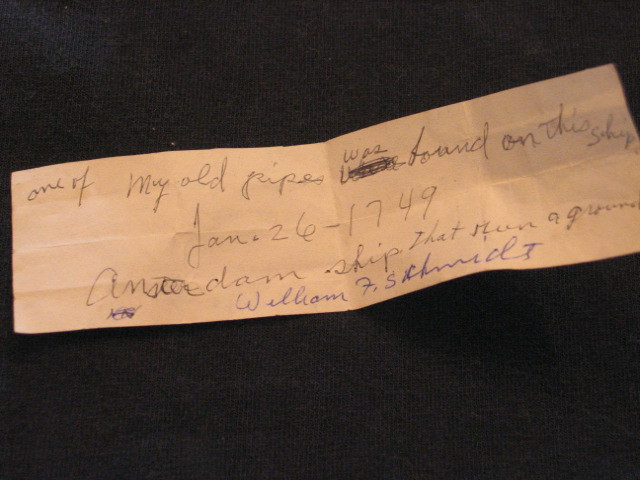 one of My old pipes was found on this ship
Jan. 26-1749
Amsterdam ship that run a ground
William F. Schmidt